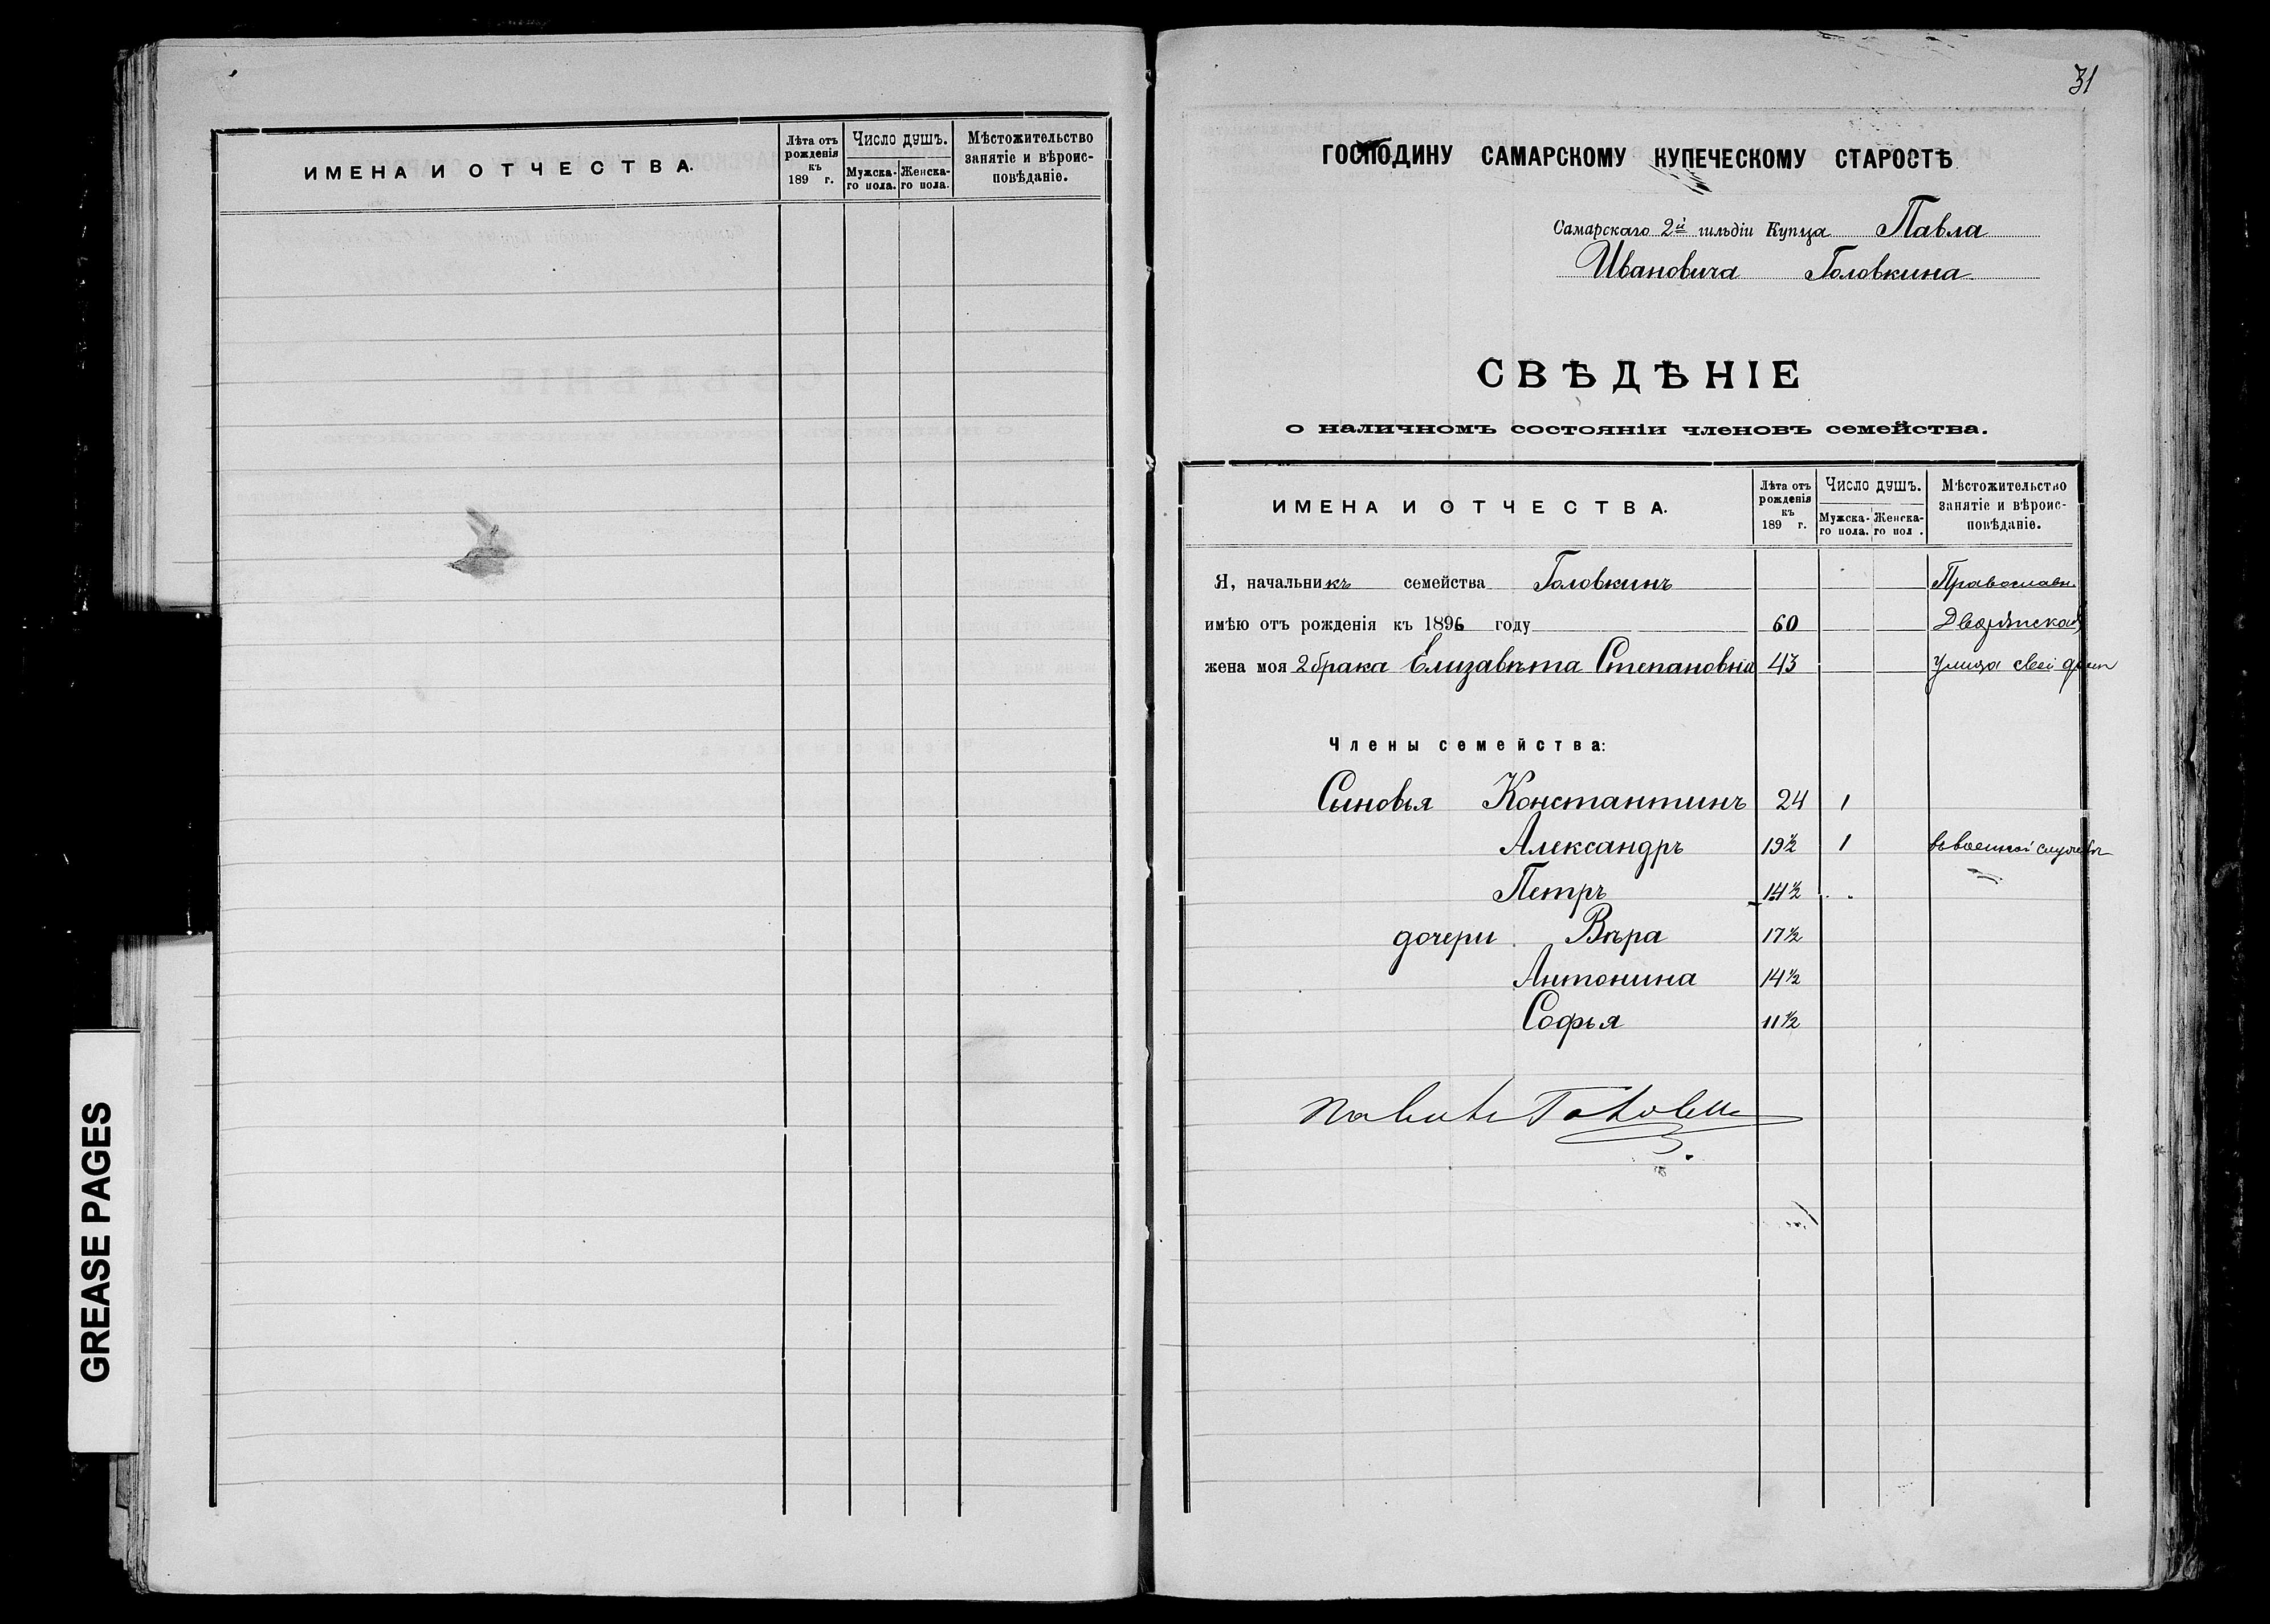 ИМЕНА И ОТЧЕСТВА.
Лѣта отъ рожденія къ 189 г.
Число душъ.
Мужска-го пола.
Женска-го пола.
Мѣстожительство занятіе и вѣроис-повѣданіе.
GREASE PAGES
31
ГОСПОДИНУ САМАРСКОМУ КУПЕЧЕСКОМУ СТАРОСТѢ
Самарскаго 2й гильдіи Купца Павла
Ивановича Головкина
СВѢДѢНІЕ
о наличномъ состояніи членовъ семейства.
ИМЕНА И ОТЧЕСТВА.
Лѣта отъ рожденія къ 189 г.
Число душъ.
Мужска-го пола.
Женска-го пол .
Мѣстожительство занятіе и вѣроис-повѣданіе.
Я, начальникъ семейства Головкинъ Православн.
имѣю отъ рожденія къ 1896 году 60 Дворянская
жена моя 2 брака Елизавѣта Степановна 43 улица свой домъ
Члены семейства:
Сыновья Константинъ 24 1
Александръ 19½ 1 въ военной службѣ
Петръ 14½
дочери Вѣра 17½
Антонина 14½
Софья 11½